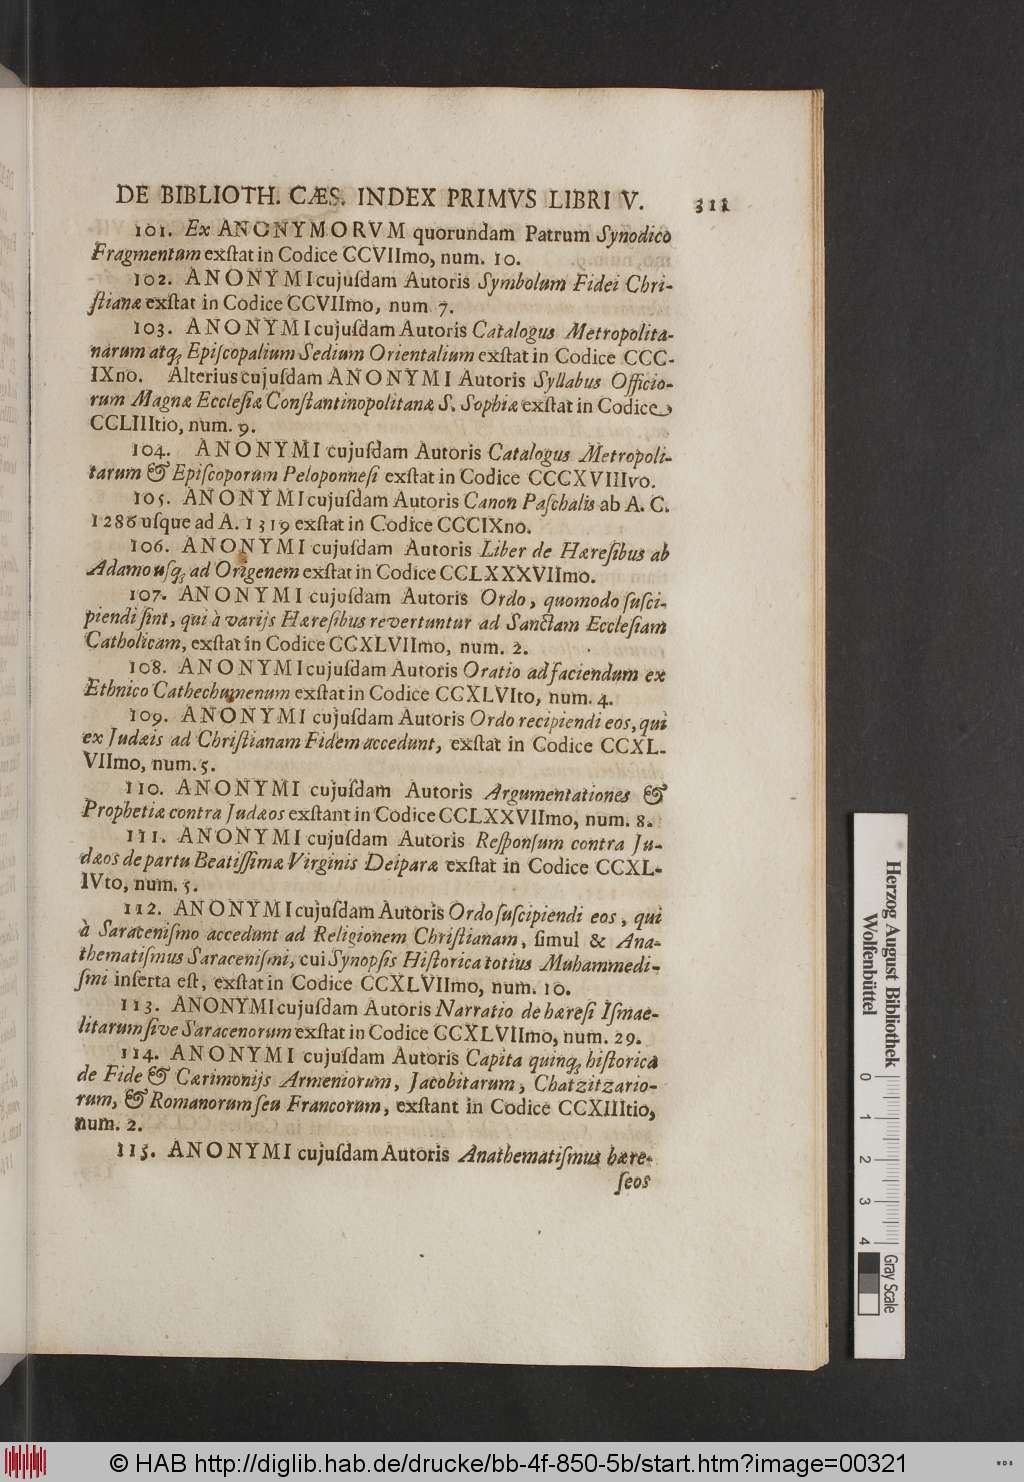 DE BIBLIOTH. CÆS. INDEX PRIMVS LIBRI V. 311
101. Ex ANONYMORVM quorundam Patrum Synodico
Fragmentum exſtat in Codice CCVIImo, num. 10.
102. ANONYMI cujuſdam Autoris Symbolum Fidei Chri-
ſtianæ exſtat in Codice CCVIImo, num. 7.
103. ANONYMI cujuſdam Autoris Catalogus Metropolita-
narum atq; Epiſcopalium Sedium Orientalium exſtat in Codice CCC-
IXno. Alterius cujuſdam ANONYMI Autoris Syllabus Officio-
rum Magnæ Eccleſiæ Conſtantinopolitanæ S. Sophiæ exſtat in Codice
CCLIIItio, num. 9.
104. ANONYMI cujuſdam Autoris Catalogus Metropoli-
tarum & Epiſcoporum Peloponneſi exſtat in Codice CCCXVIIIvo.
105. ANONYMI cujuſdam Autoris Canon Paſchalis ab A. C.
1286 uſque ad A. 1319 exſtat in Codice CCCIXno.
106. ANONYMI cujuſdam Autoris Liber de Hæreſibus ab
Adamo uſq; ad Origenem exſtat in Codice CCLXXXVIImo.
107. ANONYMI cujuſdam Autoris Ordo, quomodo ſuſci-
piendi ſint, qui à varijs Hæreſibus revertuntur ad Sanctam Eccleſiam
Catholicam, exſtat in Codice CCXLVIImo, num. 2.
108. ANONYMI cujuſdam Autoris Oratio ad faciendum ex
Ethnico Cathechumenum exſtat in Codice CCXLVIto, num. 4.
109. ANONYMI cujuſdam Autoris Ordo recipiendi eos, qui
ex Judæis ad Chriſtianam Fidem accedunt, exſtat in Codice CCXL-
VIImo, num. 5.
110. ANONYMI cujuſdam Autoris Argumentationes &
Prophetiæ contra Judæos exſtant in Codice CCLXXVIImo, num. 8.
111. ANONYMI cujuſdam Autoris Reſponſum contra Ju-
dæos de partu Beatiſſimæ Virginis Deiparæ exſtat in Codice CCXL-
IVto, num. 5.
112. ANONYMI cujuſdam Autoris Ordo ſuſcipiendi eos, qui
à Saraceniſmo accedunt ad Religionem Chriſtianam, ſimul & Ana-
thematiſmus Saraceniſmi, cui Synopſis Hiſtorica totius Muhammedi-
ſmi inſerta eſt, exſtat in Codice CCXLVIImo, num. 10.
113. ANONYMI cujuſdam Autoris Narratio de hæreſi Iſmae-
litarum ſive Saracenorum exſtat in Codice CCXLVIImo, num. 29.
114. ANONYMI cujuſdam Autoris Capita quinq; hiſtorica
de Fide & Cærimonijs Armeniorum, Jacobitarum, Chatzitzario-
rum, & Romanorum ſeu Francorum, exſtant in Codice CCXIIItio,
num. 2.
115. ANONYMI cujuſdam Autoris Anathematiſmus hære-
ſeos
Herzog August Bibliothek
Wolfenbüttel
0 1 2 3 4
Gray Scale
© HAB http://diglib.hab.de/drucke/bb-4f-850-5b/start.htm?image=00321